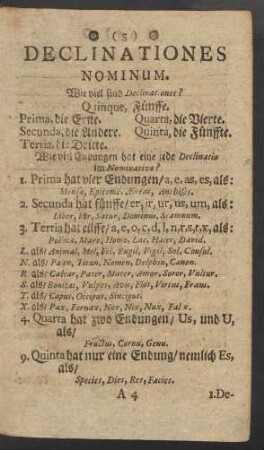 (5)
DECLINATIONES
NOMINUM.
Wie viel sind Declinationes?
Quinque, Fünffe.
Prima, die Erste. Quarta, die Vierte.
Secunda, die Andere. Quinta, die Fünffte.
Tertia, die Dritte.
Wie viel Endungen hat eine jede Declinatio
im Nominativo?
1. Prima hat vier Endungen/a, e, as, es, als:
Mensa, Epitome, Aeneas, Anchises.
2. Secunda hat fünffe/er, ir, ur, us, um, als:
Liber, Vir, Satur, Dominus, Scamnum.
3. Tertia hat eilffe/a, e, o, c, d, l, n, r, s, t, x, als:
Poëma, Mare, Homo, Lac, Halec, David.
L. als/ Animal, Mel, Fel, Pugil, Vigil, Sol, Consul.
N. als/ Pæan, Titan, Nomen, Delphin, Canon.
R. als/ Calcar, Pater, Mater, Amor, Soror, Vultur.
S. als/ Bonitas, Vulpes, Avis, Flos, Virtus, Fraus.
T. als/ Caput, Occiput, Sinciput.
X. als/ Pax, Fornax, Nex, Nix, Nux, Falx.
4. Quarta hat zwo Endungen/ Us, und U,
als/
Fructus, Cornu, Genu.
9. Quinta hat nur eine Endung/ nemlich Es,
als/
Species, Dies, Res, Facies.
A 4 1.De-